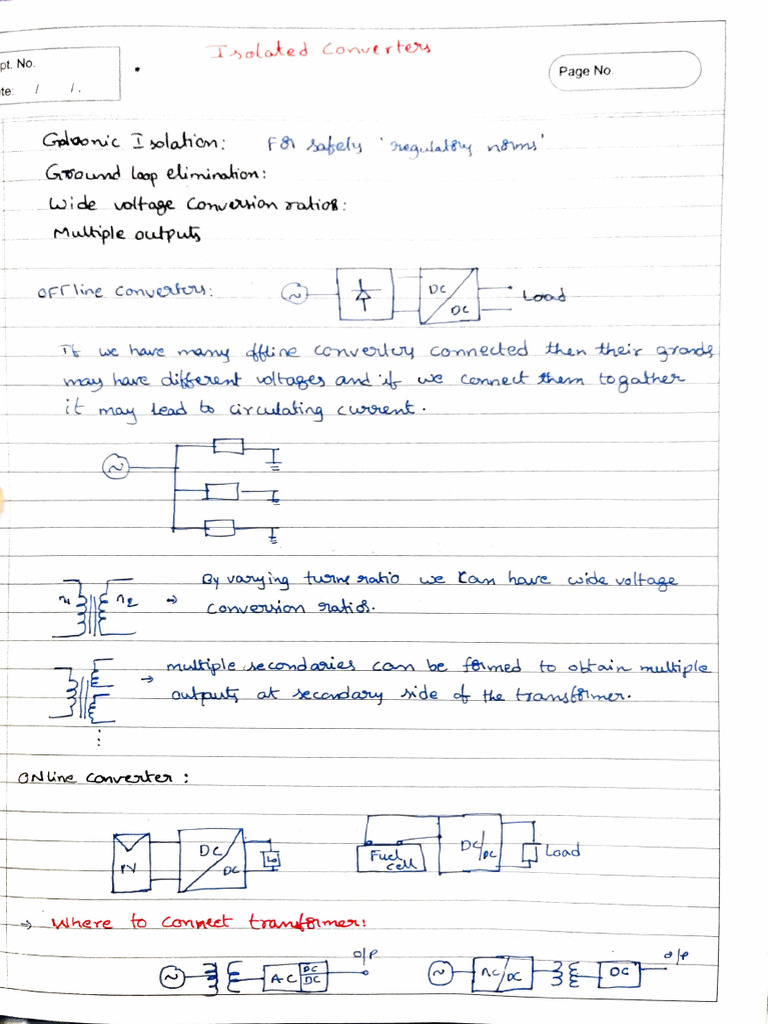 Isolated Converters
pt. No.
te: / /.
Page No.
Galvanic Isolation: For safety 'regulatory norms'
Ground loop elimination:
Wide voltage conversion ratios:
Multiple outputs
OFFline converters: ~ DC DC Load
If we have many offline converters connected then their grounds
may have different voltages and if we connect them togather
it may lead to circulating current.
~
n1 n2 → By varying turns ratio we can have wide voltage
conversion ratios.
→ multiple secondaries can be formed to obtain multiple
outputs at secondary side of the transformer.
ONline converter :
PV DC DC Lo Fuel cell DC/DC Load
→ Where to connect transformer:
~ AC DC DC O/P ~ AC/DC DC O/P